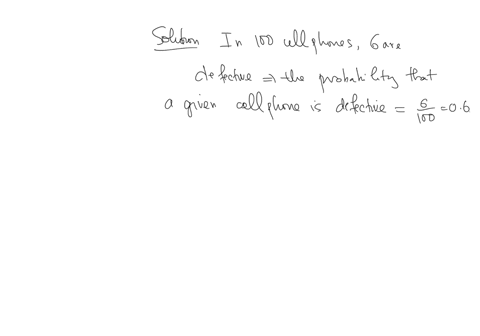 Solution In 100 cellphones, 6 are
defective ⇒ the probability that
a given cellphone is defective = 6/100 = 0.6